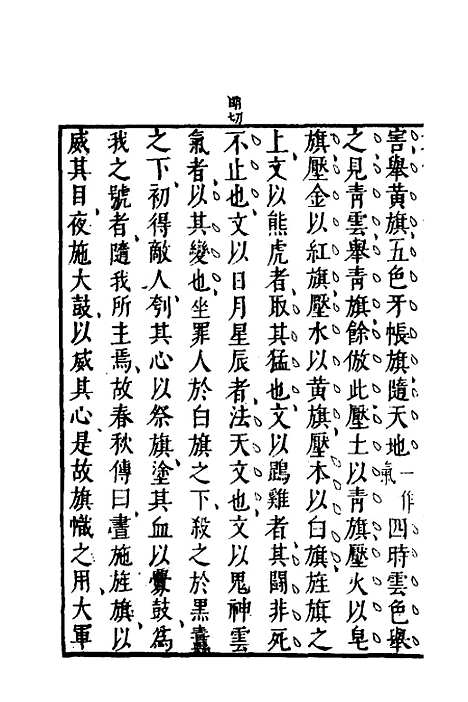 明切
害舉黃旗五色牙帳旗隨天地一作氣四時雲色舉
之見青雲舉青旗餘倣此壓土以青旗壓火以皂
旗壓金以紅旗壓水以黃旗壓木以白旗旌旗之
上文以熊虎者取其猛也文以鶡雞者其鬪非死
不止也文以日月星辰者法天文也文以鬼神雲
氣者以其變也坐罪人於白旗之下殺之於黑纛
之下初得敵人刳其心以祭旗塗其血以釁鼓為
我之號者隨我所主焉故春秋傳曰晝施旌旗以
威其目夜施大鼓以威其心是故旗幟之用大軍